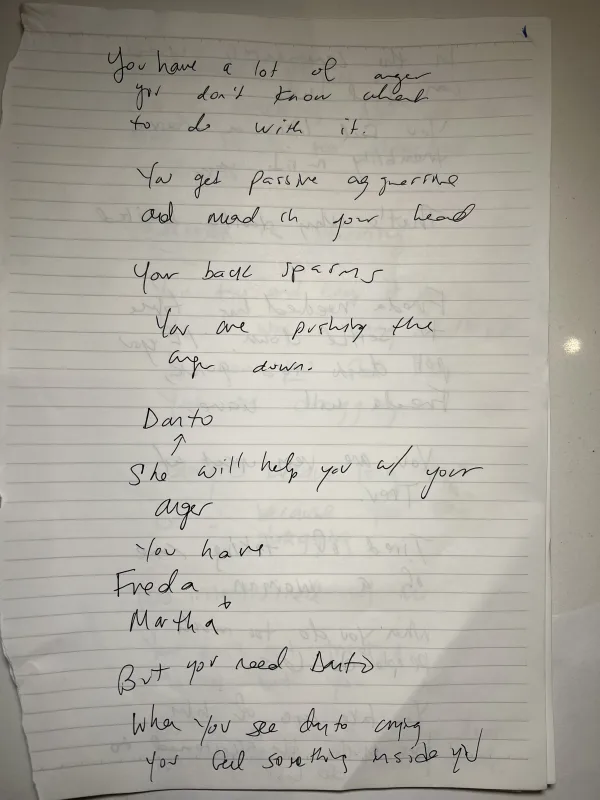 You have a lot of anger
you don't know what
to do with it.
You get passive aggressive
and mad in your head
Your back spasms
You are pushing the
anger down.
Danto
↑
She will help you w/ your
anger
You have
Freda
+
Martha
But you need Danto
When you see danto crying
you feel something inside you